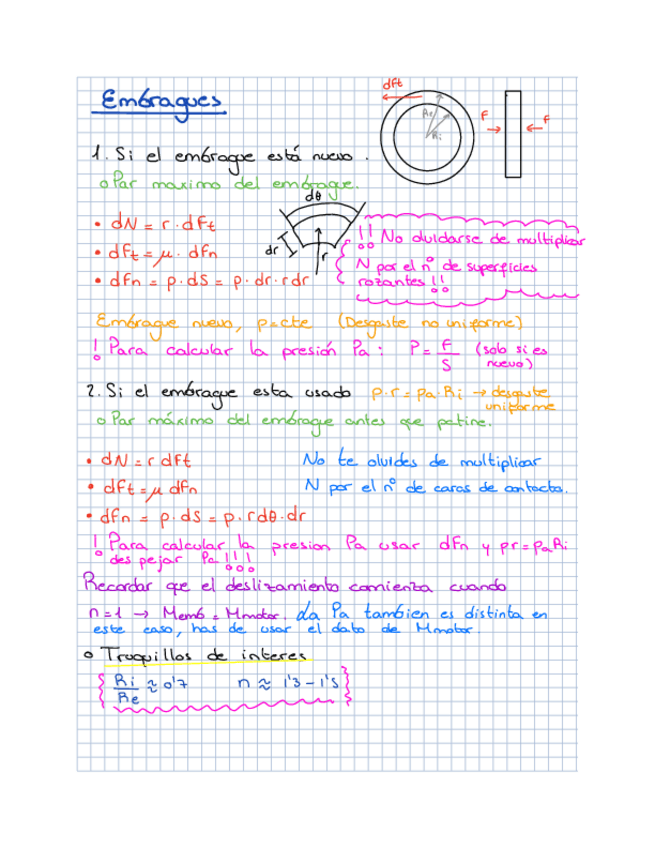 Embragues
dft
Re
Ri
F
F
1. Si el embrague está nuevo.
o Par maximo del embrague.
dθ
dr
r
• dN = r · dFt
• dFt = μ · dfn
• dFn = p · dS = p · dr · rdr
!! No olvidarse de multiplicar
N por el nº de superficies
rozantes !!
Embrague nuevo, p=cte (Desgaste no uniforme)
! Para calcular la presión Pa : P = F/S (solo si es
nuevo)
2. Si el embrague esta usado p·r = pa·Ri → desgaste
uniforme
o Par máximo del embrague antes que patine.
• dN = r dFt
• dFt = μ dFn
• dFn = p · dS = p · r dθ · dr
No te olvides de multiplicar
N por el nº de caras de contacto.
! Para calcular la presion Pa usar dFn y pr = paRi
despejar Pa !!!
Recordar que el deslizamiento comienza cuando
n=1 → Memb = Mmotor. La Pa tambien es distinta en
este caso, has de usar el dato de Mmotor.
o Truquillos de interes
Ri/Re ≈ 0'7 n ≈ 1'3 - 1'5